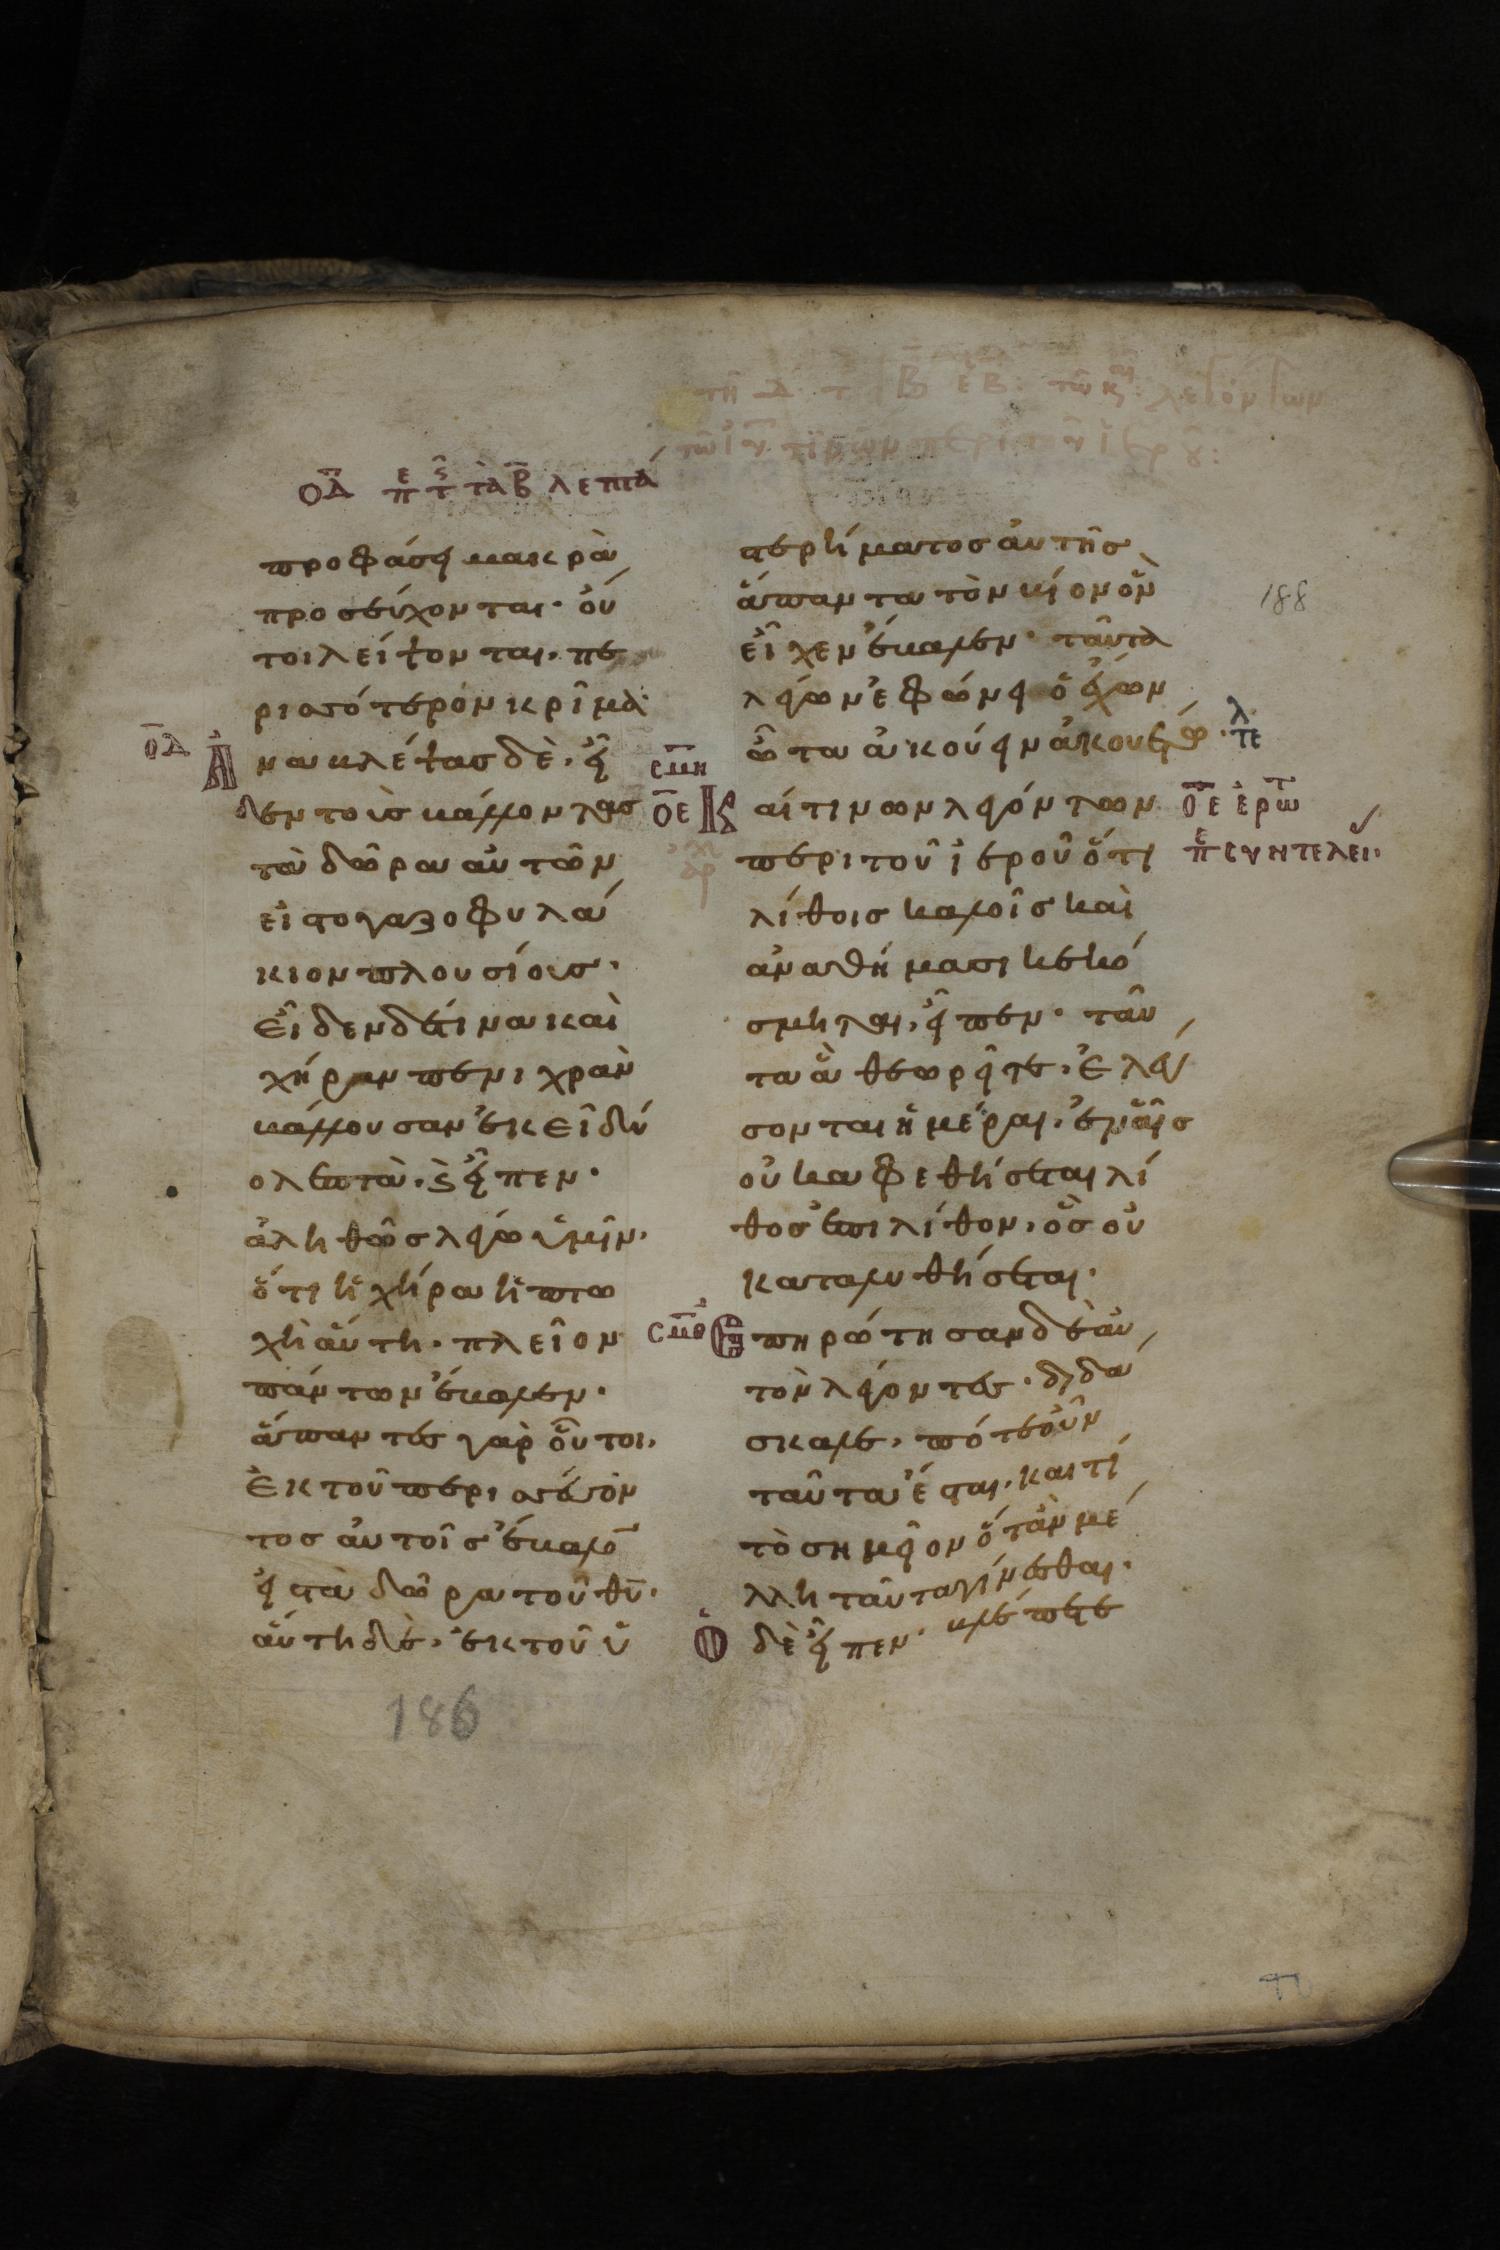 τῆ δ τ ΙΒ εβ τῶ κρ λεγόντων
τῶ ιν τινῶν περὶ τοῦ ἱερου:
οδ π τ τὰ β λεπτά
188
προφάσει μακρὰ
προσεύχονται· οὗ
τοι λείψονται, πε
ρισσότερον κρῖμα·
οδ Ἀναβλέψας δὲ, εἶ
δεν τοὺς βάλλοντας
τὰ δῶρα αὐτῶν
εἰς το γαζοφυλά
κιον πλουσίους·
εἶδεν δέ τινα καὶ
χήραν πενιχρὰν
βάλλουσαν ἐκεῖ δύ
ο λεπτὰ, ϗ εἶπεν·
ἀληθῶς λέγω ὑμῖν,
ὅτι ἡ χήρα ἡ πτω
χὴ αὕτη, πλεῖον
πάντων ἔβαλεν·
ἅπαντες γὰρ οὗτοι,
ἐκ τοῦ περισσεύον
τος αὐτοῖς ἔβαλο̅
εἰς τὰ δῶρα τοῦ θυ̅·
αὕτη δὲ, ἐκ τοῦ ὑ
186
στερήματος αὐτῆς
ἅπαντα τὸν βίον ὃν
εἶχεν ἔβαλεν· ταῦτα
λέγων ἐφώνει ὁ ἔχων
ὦτα ἀκούειν ἀκουέτω·
λ
τε
σμη
οε Καί τινων λεγόντων
οε ἐρωτ
π συντελεί·
αρ
περὶ τοῦ ἱεροῦ ὅτι
λίθοις καλοῖς καὶ
ἀναθήμασι κεκό
σμηται, εἶπεν· ταῦ
τα ἃ θεωρεῖτε, ἐλεύ
σονται ἡμέραι, ἐν αἷς
οὐκ ἀφεθήσεται λί
θος ἐπι λίθον, ὃς οὐ
καταλυθήσεται·
σμθ Ἐπηρώτησαν δὲ αὐ
τὸν λέγοντες· διδά
σκαλε, πότε οὖν
ταῦτα ἔσται, και τί
τὸ σημεῖον ὅταν μέ
λλη ταῦτα γίνεσθαι·
Ὁ δὲ εἶπεν· βλέπετε